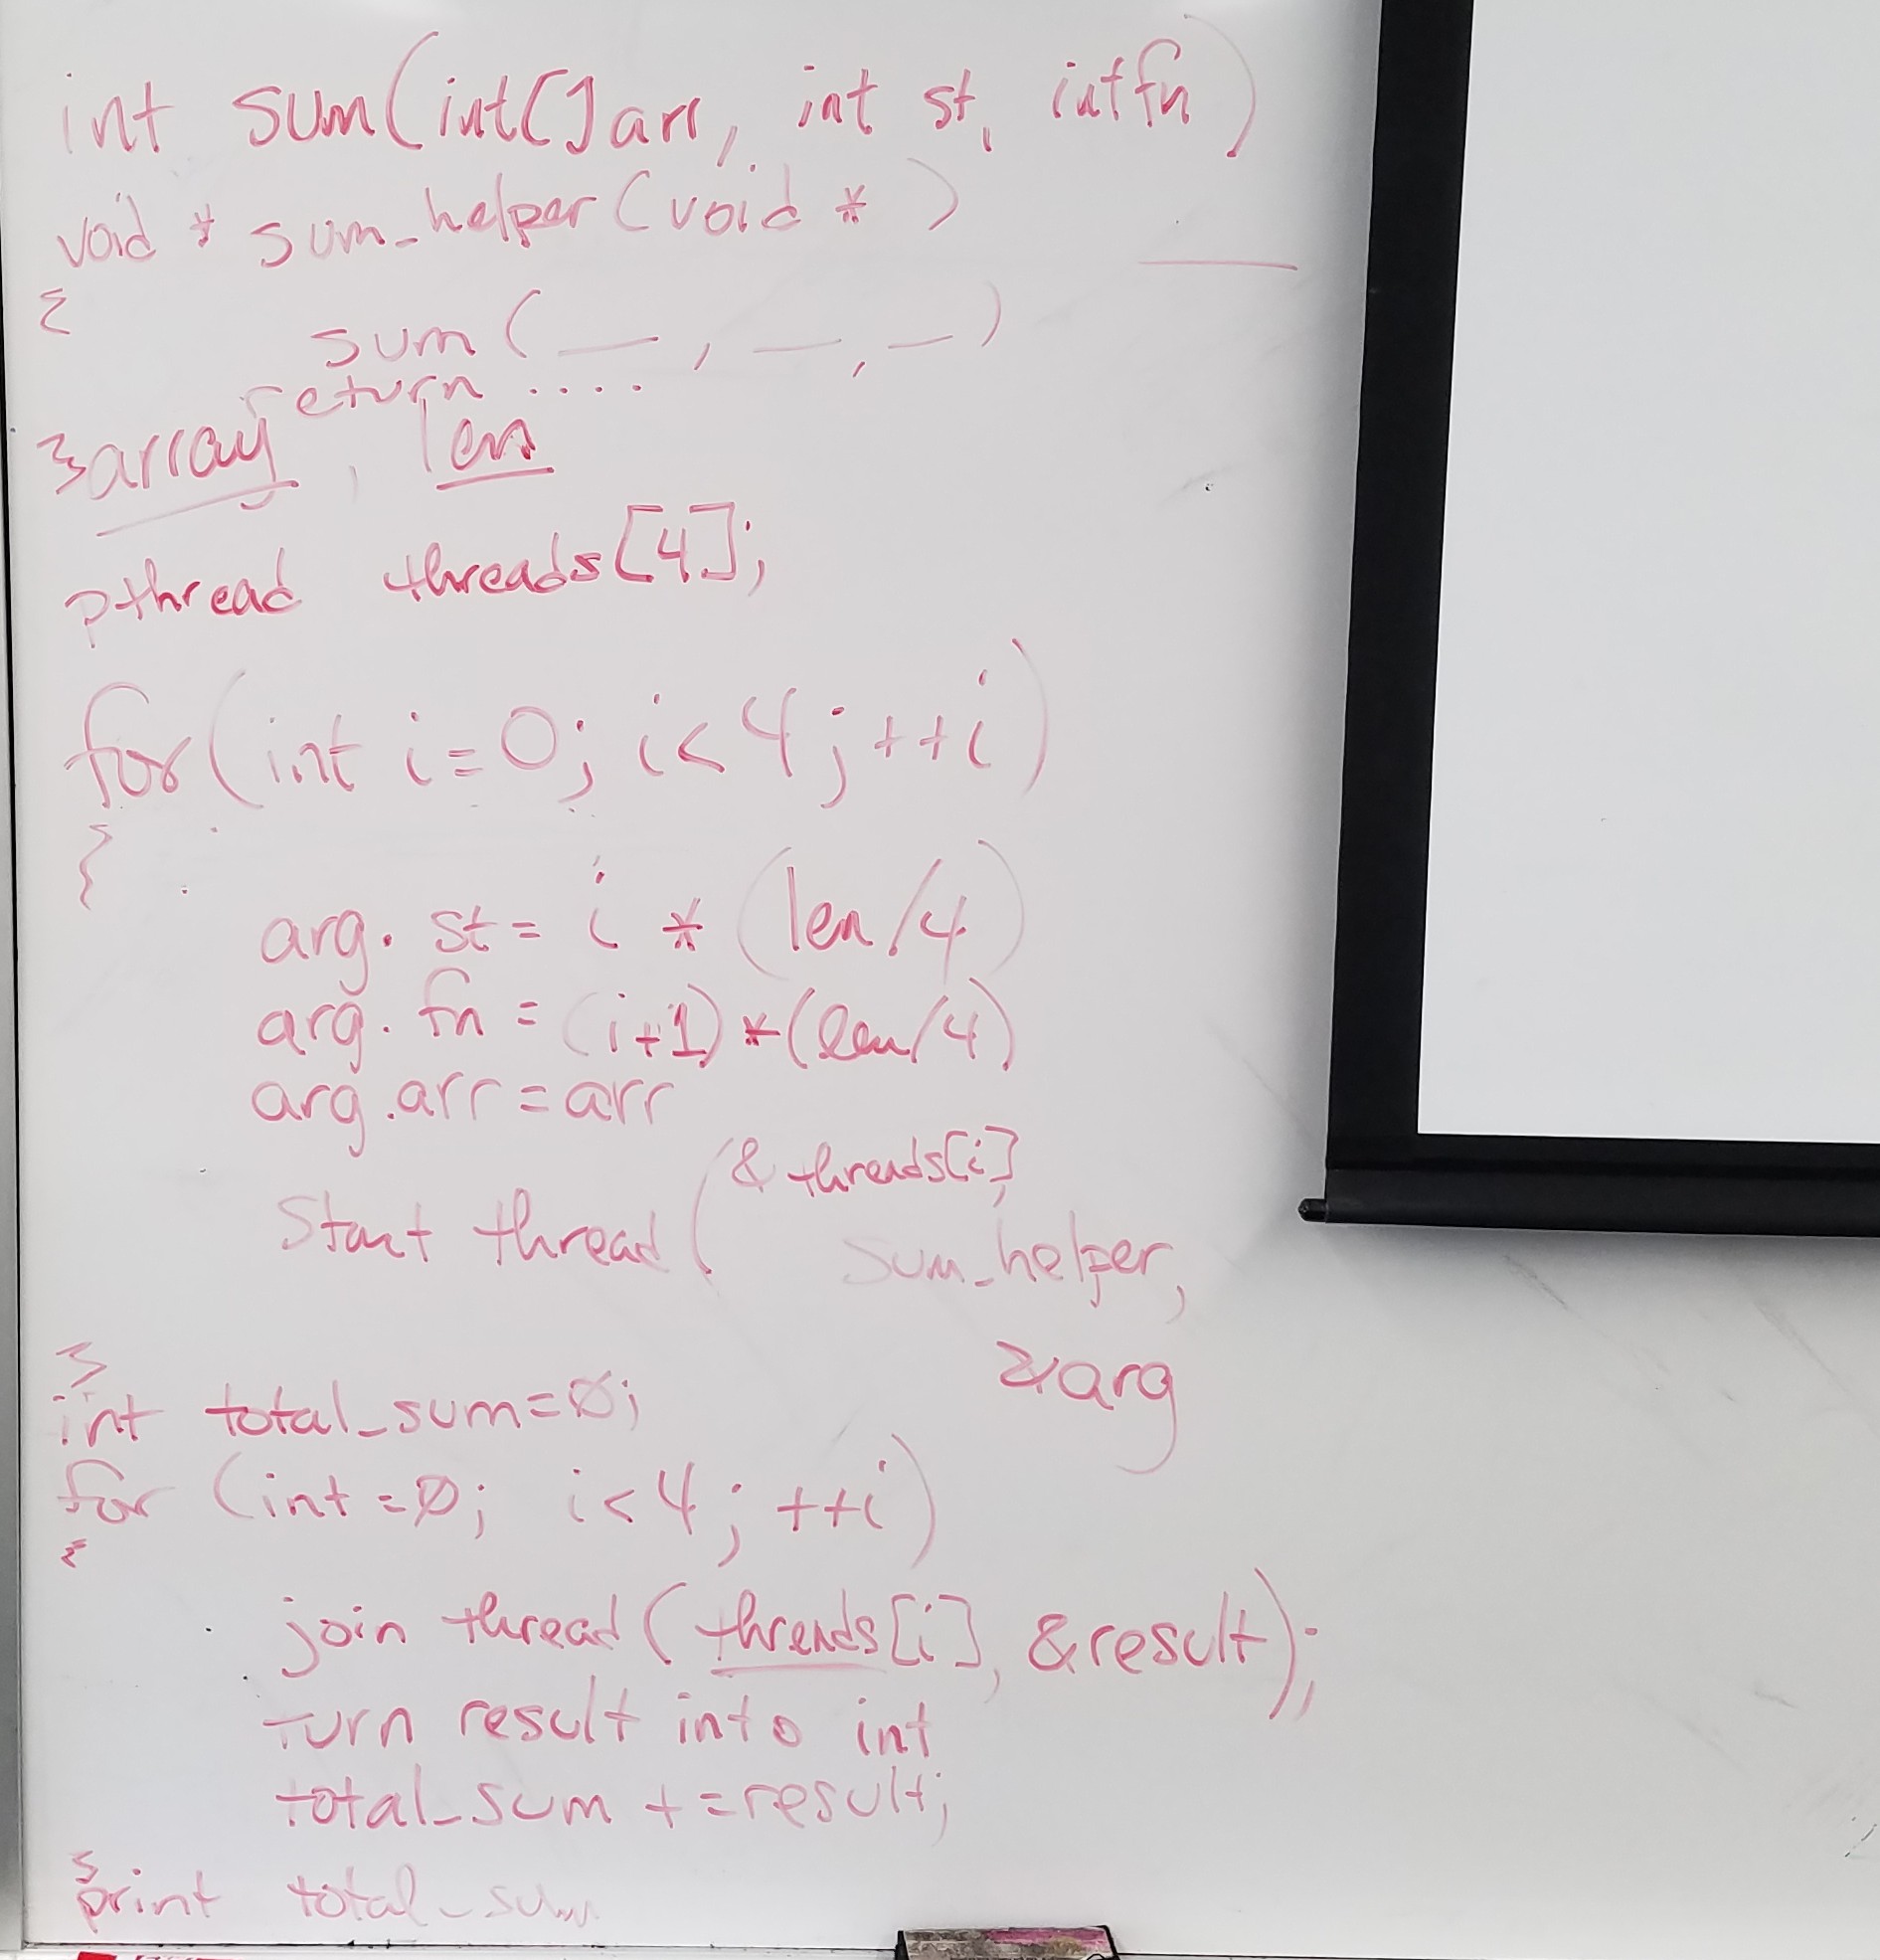 int sum(int[]arr, int st, int fn)
void * sum_helper(void * )
{
sum(__, __, __)
return ....
}array, len
pthread threads[4];
for(int i=0; i<4; ++i)
{
arg. st= i * (len/4)
arg. fn = (i+1)*(len/4)
arg.arr=arr
Start thread( &threads[i],
sum_helper,
&arg
}
int total_sum=0;
for (int=0; i<4; ++i)
{
join thread(threads[i], &result);
turn result into int
total_sum +=result;
}
print total_sum